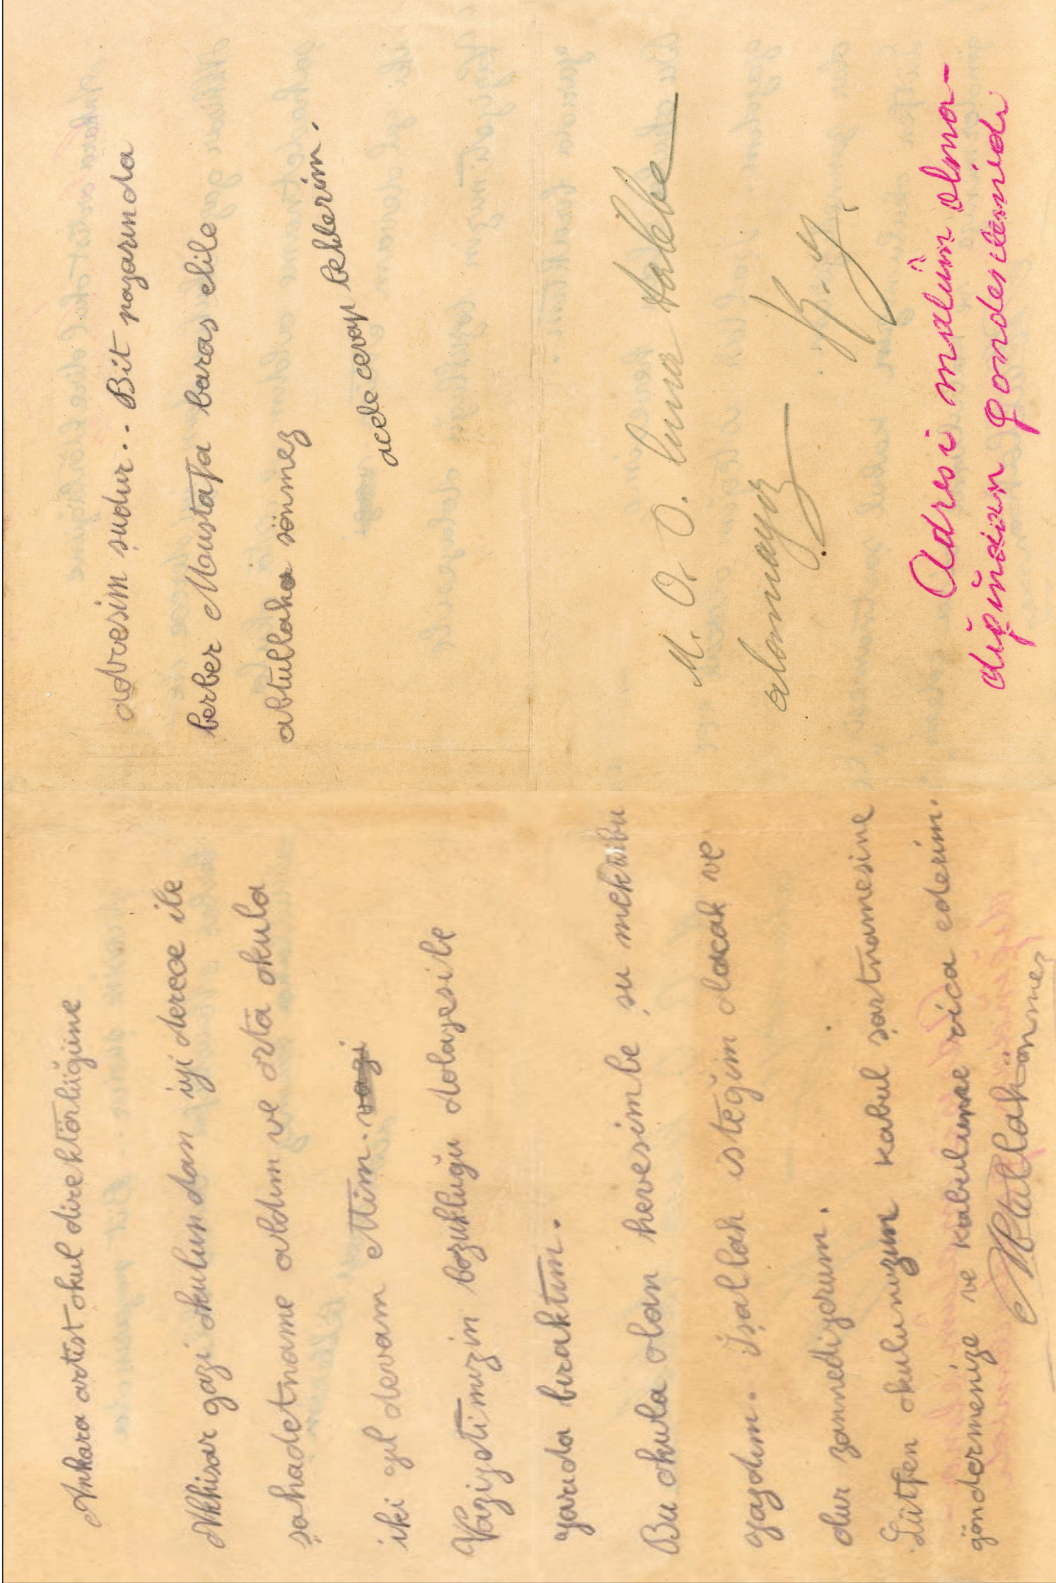 Ankara artist okul direktörlüğüne
Akhisar gazi okulundan iyi derece ile
şahadetname aldım ve orta okula
iki yıl devam ettim. vazi
Vaziyetimizin bozukluğu dolayesile
yarıda bıraktım.
Bu okula olan hevesimle şu mektubu
yazdım. İşallah isteğim olacak ve
dur zannediyorum.
Lütfen okulunuzun kabul şartnamesine
göndermenize ve kabulumae rica ederim.
Abtullah Sönmez
adresim şudur.. Bit pazarında
berber Moustafa baras elile
abtullah sönmez
acele cevap beklerim.
M. O. O. luna talebe
alamayız
Adresi malûm olma-
dığından gönderilemedi